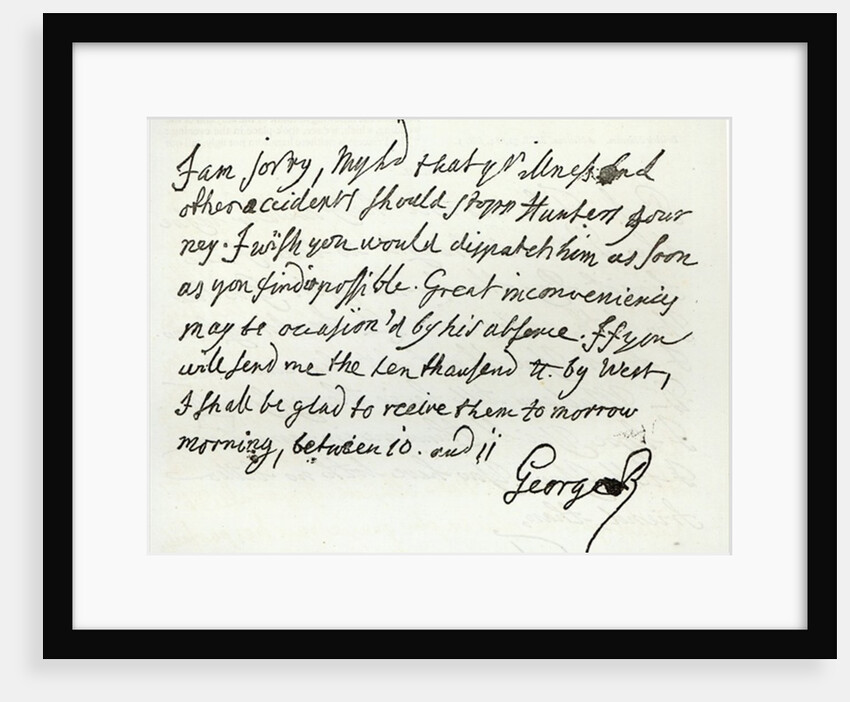 I am sorry, Mylord that yr illness and
other accidents should stopp Hunters your
ney. I wish you would dispatch him as soon
as you find possible. Great inconveniencies
may be occasion'd by his absence. If you
will send me the ten thausend tt. by West,
I shall be glad to rceive them to morrow
morning, between 10. and 11
George R